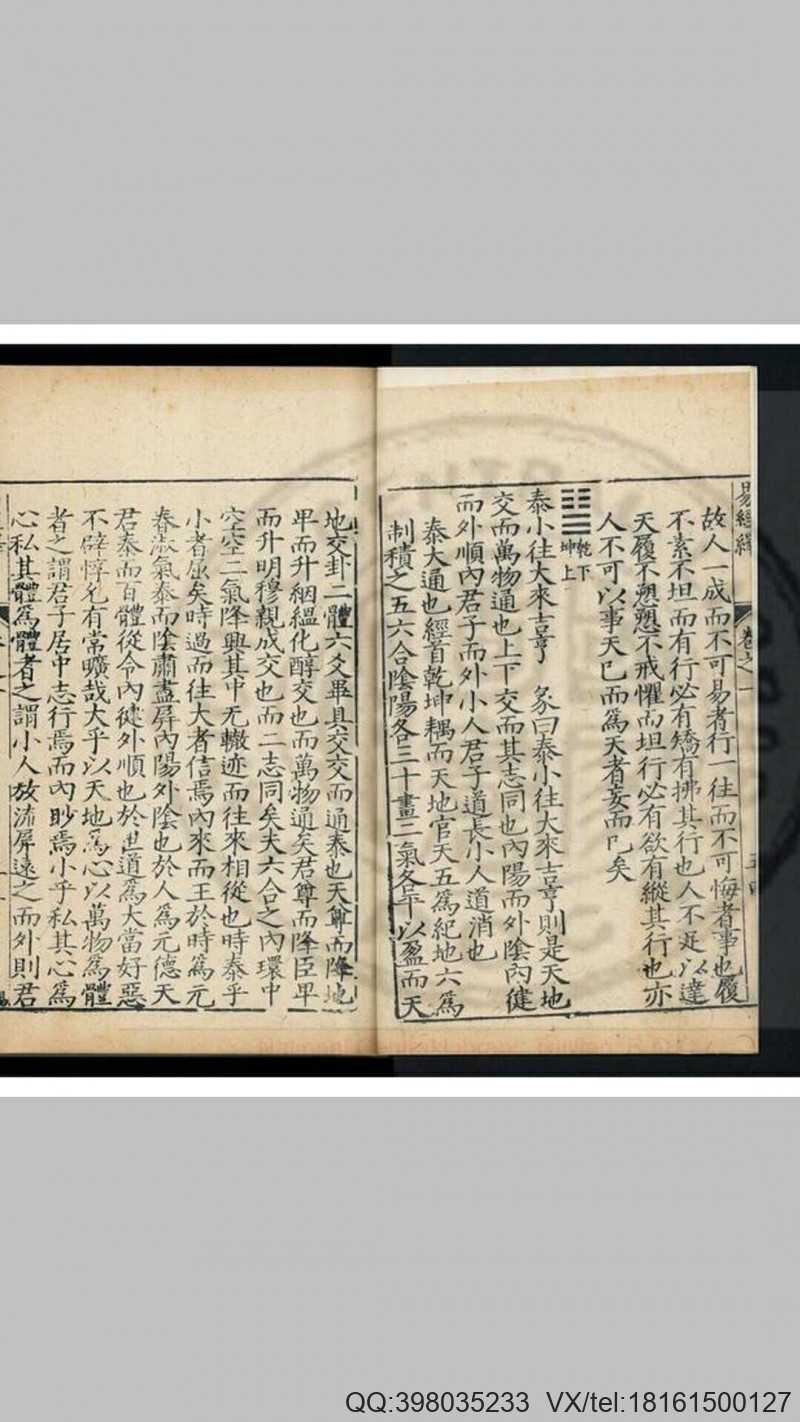 易經繹 卷之一 五四
故人一成而不可易者行一往而不可悔者事也履
不素不坦而有行必有矯有拂其行也人不足以達
天履不愬愬不戒懼而坦行必有欲有縱其行也亦
人不可以事天已而為天者妄而已矣
乾下
坤上
泰小往大來吉亨 彖曰泰小往大來吉亨則是天地
交而萬物通也上下交而其志同也內陽而外陰內健
而外順內君子而外小人君子道長小人道消也
泰大通也經首乾坤耦而天地官天五為紀地六為
制積之五六合陰陽各三十畫二氣各平以盈而天
地交卦二體六爻畢具交交而通泰也天尊而降地
卑而升絪縕化醇交也而萬物通矣君尊而降臣卑
而升明穆親成交也而二志同矣夫六合之內環中
空空二氣降興其中无轍迹而往來相從也時泰乎
小者屈矣時過而往大者信焉內來而王於時為元
春淑氣泰而陰肅盡屏內陽外陰也於人為元德天
君泰而百體從令內健外順也於世道為大當好惡
不辟惇允有常曠哉大乎以天地為心以萬物為體
者之謂君子居中志行焉而內眇焉小乎私其心為
心私其體為體者之謂小人放流屏遠之而外則君
QQ:398035233 VX/tel:18161500127